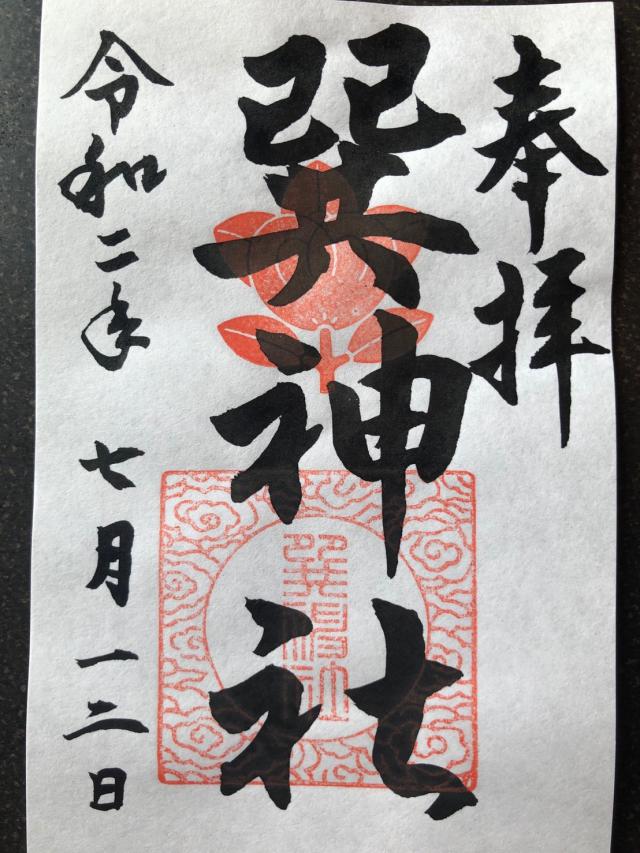 奉拝
巽神社
巽神社
令和二年 七月一二日